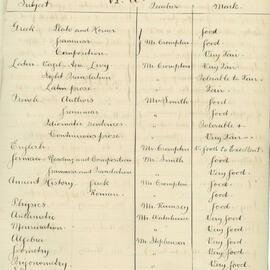 Subject Teacher Mark
Greek Plato and Homer Good
Grammar Mr Crompton Good
Composition Very Fair
Latin Virgil and Livy Mr Crompton Very Fair
Sight Translation " Tolerable to Fair
Latin prose " Fair
French Authors Mr Smith Good
Grammar " Good
Idiomatic sentences " Tolerable +
Continuous prose " Very Fair
English Mr Crompton V. Good to Excellent
German Reading and Composition Mr Smith Good
Grammar and Translation " Very Good
Ancient History Greek Mr Crompton Good
Roman " Good
Physics Mr Rumsey Good
Arithmetic Mr Very Good
Mensuration " Very Good
Algebra Mr Stephenson Very Good
Geometry " Very Good
Trigonometry " Very Good